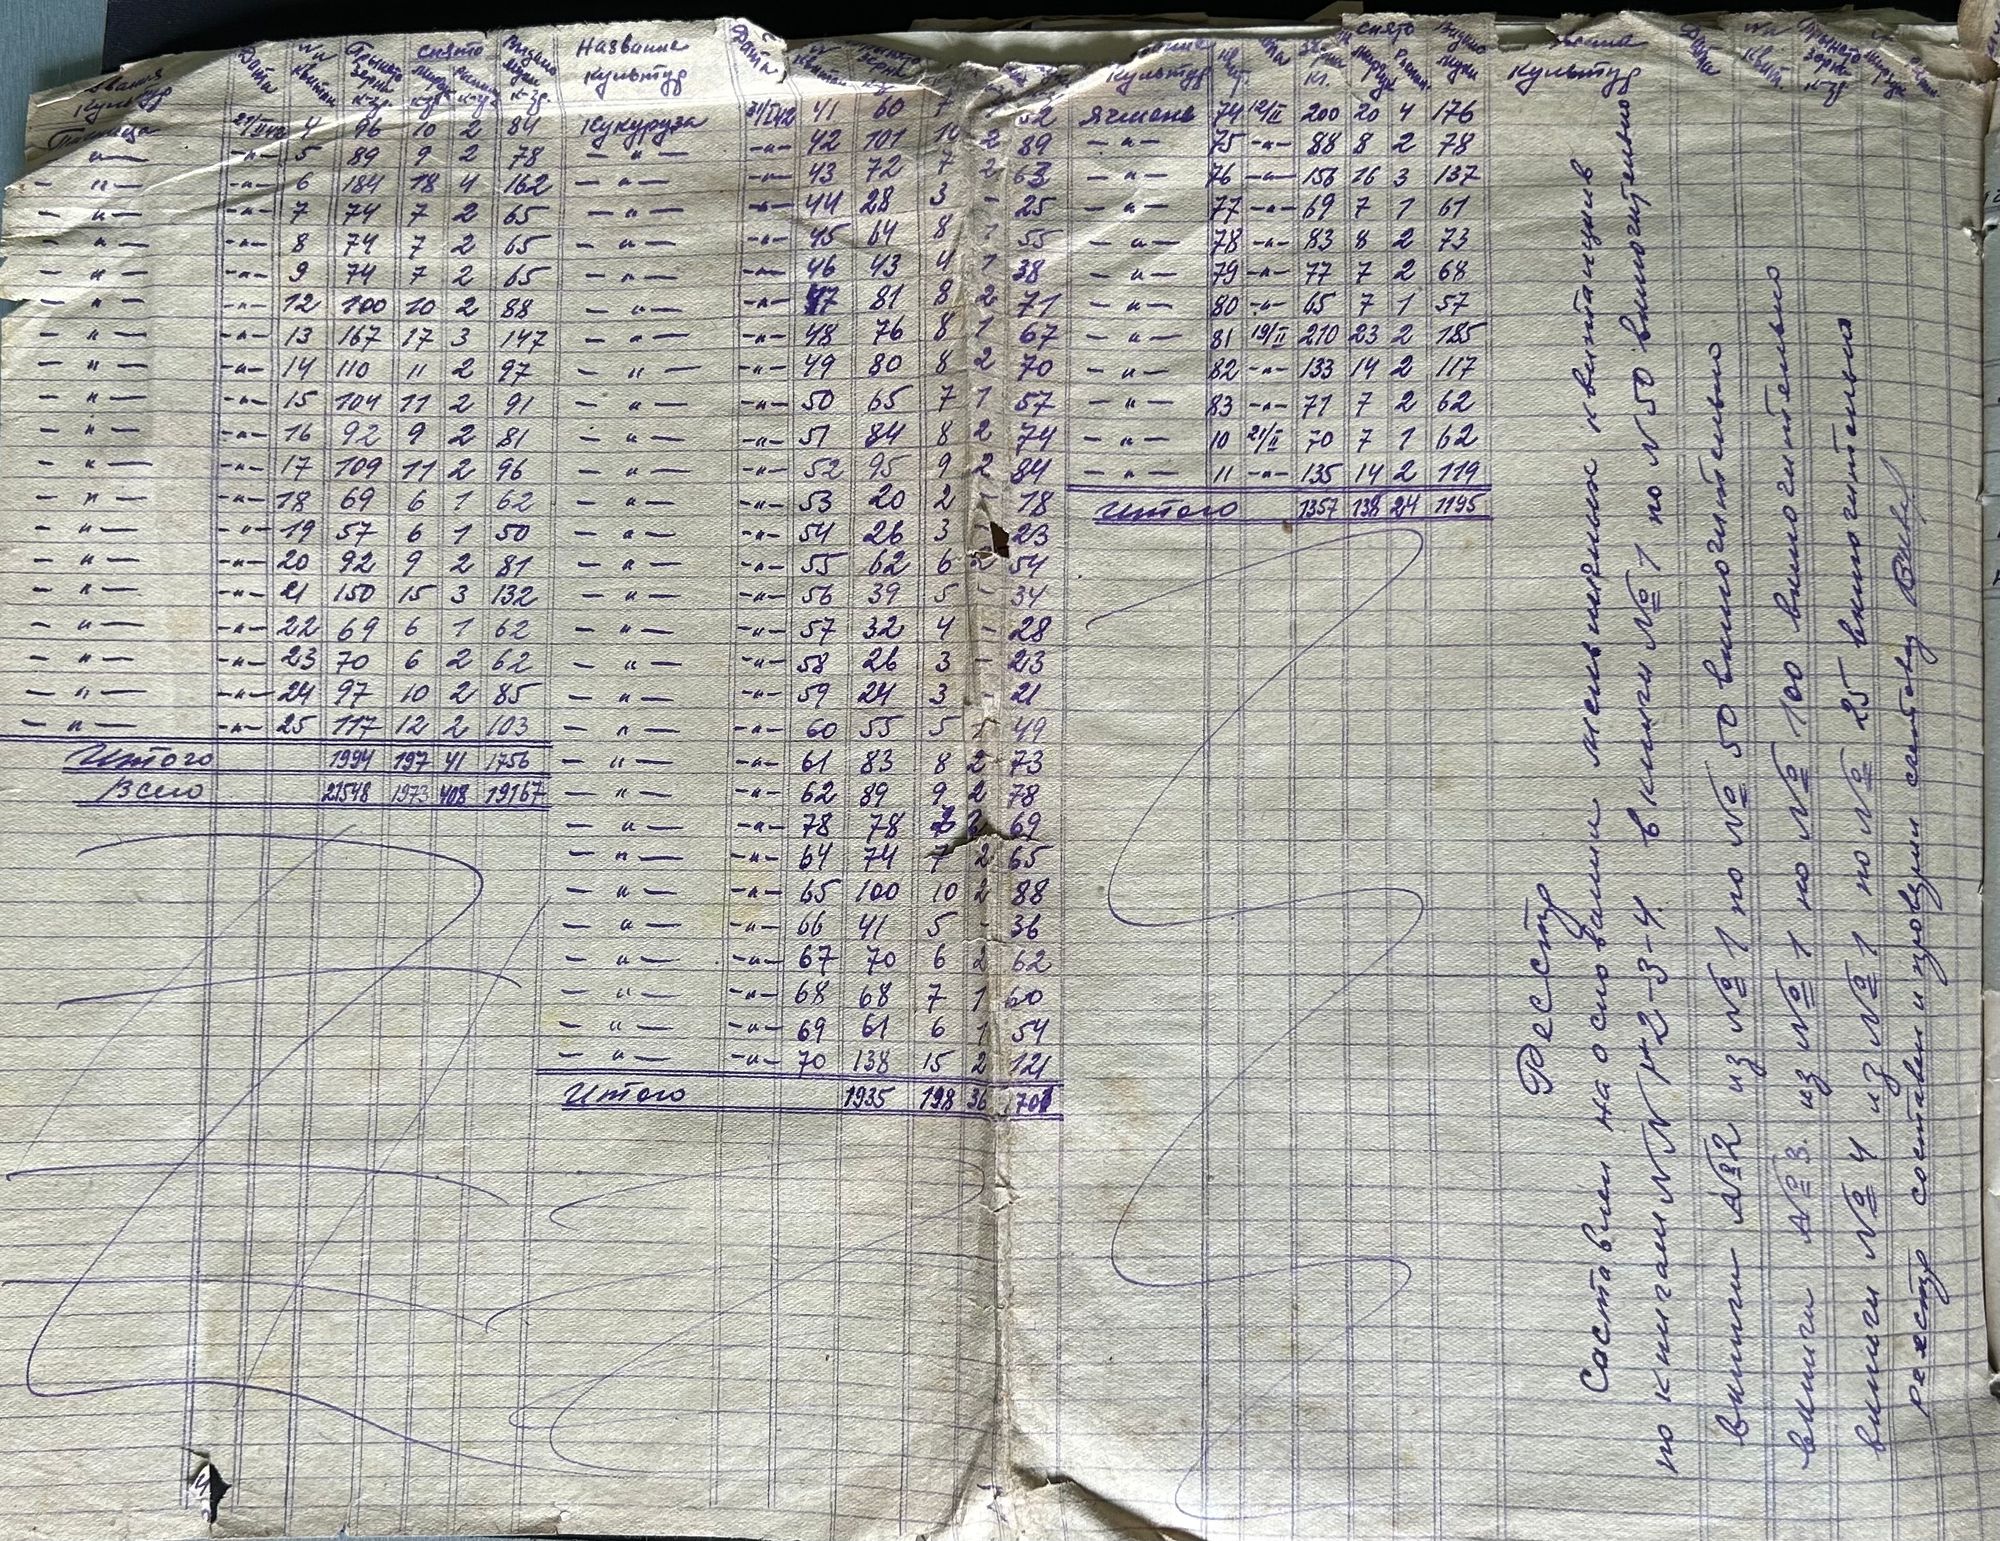 звания культур Дата NN квитан Принято зерна к-гр. снято мирчук к-гр. распыл к-гр. Выдано муки к-гр.
Пшеница 21/II 42 4 96 10 2 84
—"— -"- 5 89 9 2 78
—"— -"- 6 184 18 4 162
—"— -"- 7 74 7 2 65
—"— -"- 8 74 7 2 65
—"— -"- 9 74 7 2 65
—"— -"- 12 100 10 2 88
—"— -"- 13 167 17 3 147
—"— -"- 14 110 11 2 97
—"— -"- 15 104 11 2 91
—"— -"- 16 92 9 2 81
—"— -"- 17 109 11 2 96
—"— -"- 18 69 6 1 62
—"— -"- 19 57 6 1 50
—"— -"- 20 92 9 2 81
—"— -"- 21 150 15 3 132
—"— -"- 22 69 6 1 62
—"— -"- 23 70 6 2 62
—"— -"- 24 97 10 2 85
—"— -"- 25 117 12 2 103
Итого 1994 197 41 1756
Всего 21548 1973 408 19167
Название культур Дата квитан зерна
Кукуруза 31/I 42 41 60 7 1 52
—"— -"- 42 101 10 2 89
—"— -"- 43 72 7 2 63
—"— -"- 44 28 3 - 25
—"— -"- 45 64 8 1 55
—"— -"- 46 43 4 1 38
—"— -"- 47 81 8 2 71
—"— -"- 48 76 8 1 67
—"— -"- 49 80 8 2 70
—"— -"- 50 65 7 1 57
—"— -"- 51 84 8 2 74
—"— -"- 52 95 9 2 84
—"— -"- 53 20 2 - 18
—"— -"- 54 26 3 - 23
—"— -"- 55 62 6 2 54
—"— -"- 56 39 5 - 34
—"— -"- 57 32 4 - 28
—"— -"- 58 26 3 - 23
—"— -"- 59 24 3 - 21
—"— -"- 60 55 5 1 49
—"— -"- 61 83 8 2 73
—"— -"- 62 89 9 2 78
—"— -"- 78 78 7 2 69
—"— -"- 64 74 7 2 65
—"— -"- 65 100 10 2 88
—"— -"- 66 41 5 - 36
—"— -"- 67 70 6 2 62
—"— -"- 68 68 7 1 60
—"— -"- 69 61 6 1 54
—"— -"- 70 138 15 2 121
Итого 1935 198 36 1701
культур кг. снято мирчук Распыл. Выдано муки
Ячмень 74 12/II 200 20 4 176
—"— 75 -"- 88 8 2 78
—"— 76 -"- 156 16 3 137
—"— 77 -"- 69 7 1 61
—"— 78 -"- 83 8 2 73
—"— 79 -"- 77 7 2 68
—"— 80 -"- 65 7 1 57
—"— 81 19/II 210 23 2 185
—"— 82 -"- 133 14 2 117
—"— 83 -"- 71 7 2 62
—"— 10 21/II 70 7 1 62
—"— 11 -"- 135 14 2 119
Итого 1357 138 24 1195
культур Дата NN квит. Принято зерна к-гр. мирчук
Реестр
Саставлен на основании мельничных квитанцив
по книгам NN 1-2-3-4. в книги № 1 по N 50 включительно
вкниги №2 из № 1 по № 50 включительно
вкниги №3. из № 1 по № 100 включительно
вкниги № 4 из № 1 по № 25 включительно
реестр составлен и проверил